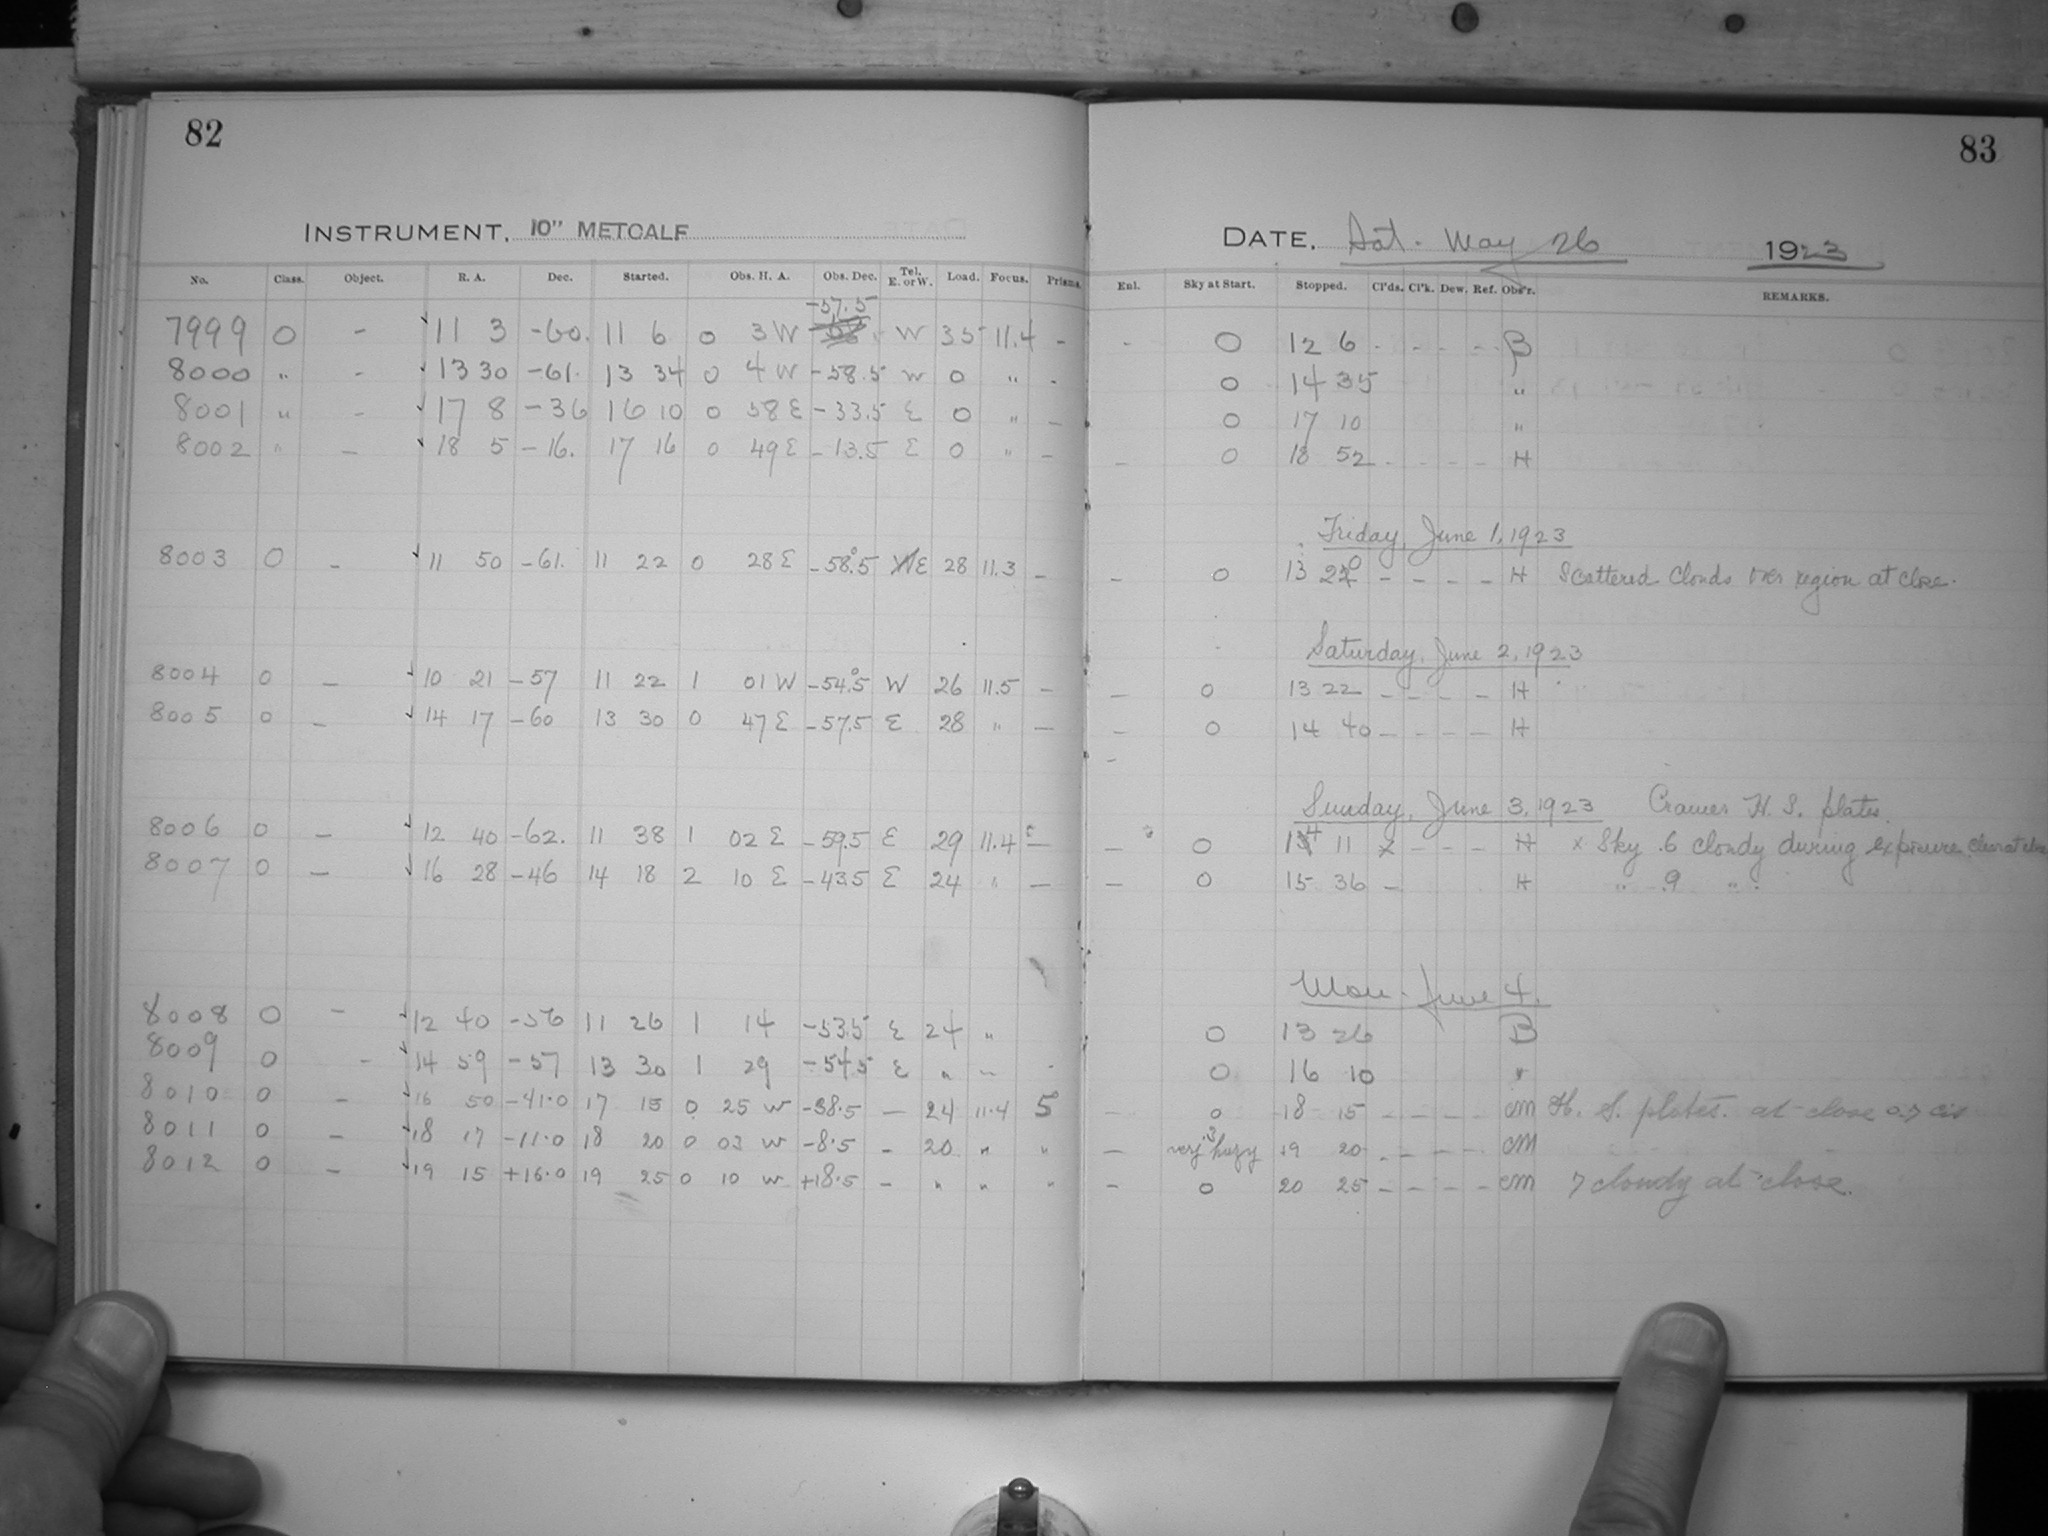 82
INSTRUMENT, 10" METCALF
No. Class. Object. R. A. Dec. Started. Obs. H. A. Obs. Dec. Tel. E. or W. Load. Focus. Prisms.
-57.5
7999 O - 11 3 -60. 11 6 0 3 W W 35 11.4 -
8000 " - 13 30 -61. 13 34 0 4 W -58.5 W 0 " -
8001 " - 17 8 -36 16 10 0 58 E -33.5 E 0 " -
8002 " - 18 5 -16. 17 16 0 49 E -13.5 E 0 " -
8003 O - 11 50 -61. 11 22 0 28 E -58.5 E 28 11.3 -
8004 O - 10 21 -57 11 22 1 01 W -54.5 W 26 11.5 -
8005 O - 14 17 -60 13 30 0 47 E -57.5 E 28 " -
8006 O - 12 40 -62. 11 38 1 02 E -59.5 E 29 11.4 -
8007 O - 16 28 -46 14 18 2 10 E -43.5 E 24 " -
8008 O - 12 40 -56 11 26 1 14 -53.5 E 24 "
8009 O - 14 59 -57 13 30 1 29 -54.5 E " "
8010 O - 16 50 -41.0 17 15 0 25 W -38.5 - 24 11.4 5
8011 O - 18 17 -11.0 18 20 0 03 W -8.5 - 20 " "
8012 O - 19 15 +16.0 19 25 0 10 W +18.5 - " " "
83
DATE, Sat. May 26 1923
Enl. Sky at Start. Stopped. Cl'ds. Cl'k. Dew. Ref. Obs'r. REMARKS.
- O 12 6 - - - - B
O 14 35 "
O 17 10 "
- O 18 52 - - - - H
Friday, June 1, 1923
- O 13 20 - - - - H Scattered clouds over region at close.
Saturday, June 2, 1923
- O 13 22 - - - - H
- O 14 40 - - - - H
Sunday, June 3, 1923 Cramer H. S. plates.
- O 14 11 x - - - H x Sky .6 cloudy during exposure
- O 15 36 - H " .9 "
Mon. June 4.
O 13 26 B
O 16 10 "
- O 18 15 - - - - CM H. S. plates. at close
- very .3 hazy 19 20 - - - - CM
- O 20 25 - - - - CM 7 cloudy at close.